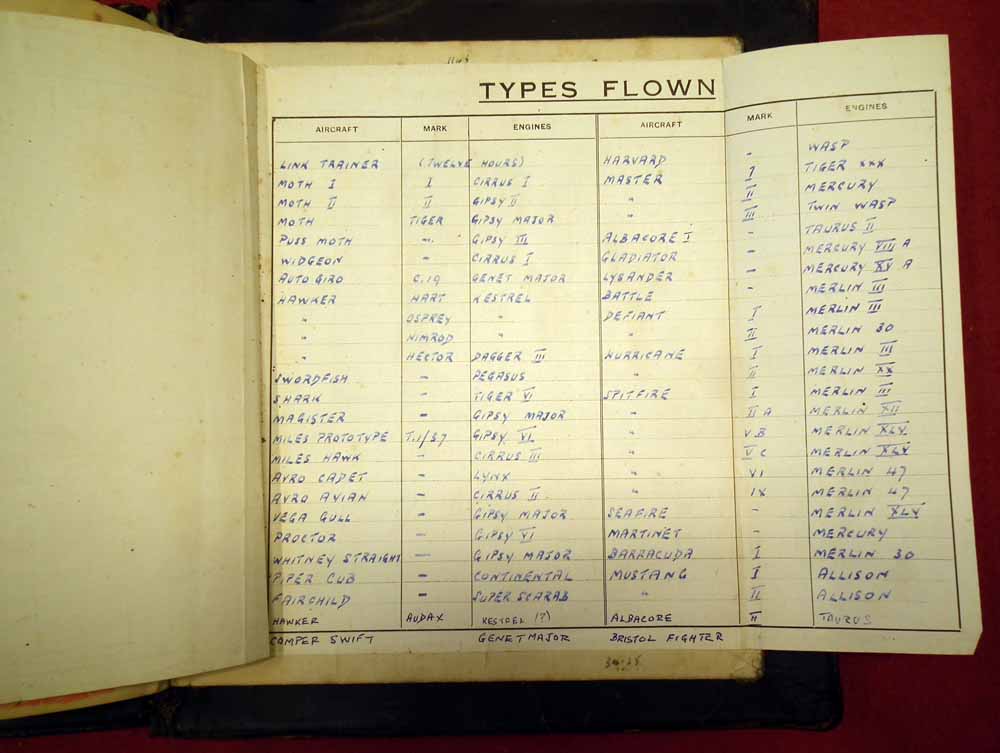 1145
TYPES FLOWN
AIRCRAFT MARK ENGINES AIRCRAFT MARK ENGINES
LINK TRAINER (TWELVE HOURS) HARVARD - WASP
MOTH I I CIRRUS I MASTER I TIGER XXX
MOTH II II GIPSY II " II MERCURY
MOTH TIGER GIPSY MAJOR " III TWIN WASP
PUSS MOTH - GIPSY III ALBACORE I - TAURUS II
WIDGEON - CIRRUS I GLADIATOR - MERCURY VIII A
AUTO GIRO C.19 GENET MAJOR LYSANDER - MERCURY XV A
HAWKER HART KESTREL BATTLE - MERLIN III
" OSPREY " DEFIANT I MERLIN III
" NIMROD " " II MERLIN 30
" HECTOR DAGGER III HURRICANE I MERLIN III
SWORDFISH - PEGASUS " II MERLIN XX
SHARK - TIGER VI SPITFIRE I MERLIN III
MAGISTER - GIPSY MAJOR " II A MERLIN XII
MILES PROTOTYPE T.1/37 GIPSY VI " V B MERLIN XLV
MILES HAWK - CIRRUS III " V C MERLIN XLV
AVRO CADET - LYNX " VI MERLIN 47
AVRO AVIAN - CIRRUS II " IX MERLIN 47
VEGA GULL - GIPSY MAJOR SEAFIRE - MERLIN XLV
PROCTOR - GIPSY VI MARTINET - MERCURY
WHITNEY STRAIGHT - GIPSY MAJOR BARRACUDA I MERLIN 30
PIPER CUB - CONTINENTAL MUSTANG I ALLISON
FAIRCHILD - SUPER SCARAB " II ALLISON
HAWKER AUDAX KESTREL (?) ALBACORE II TAURUS
COMPER SWIFT GENET MAJOR BRISTOL FIGHTER